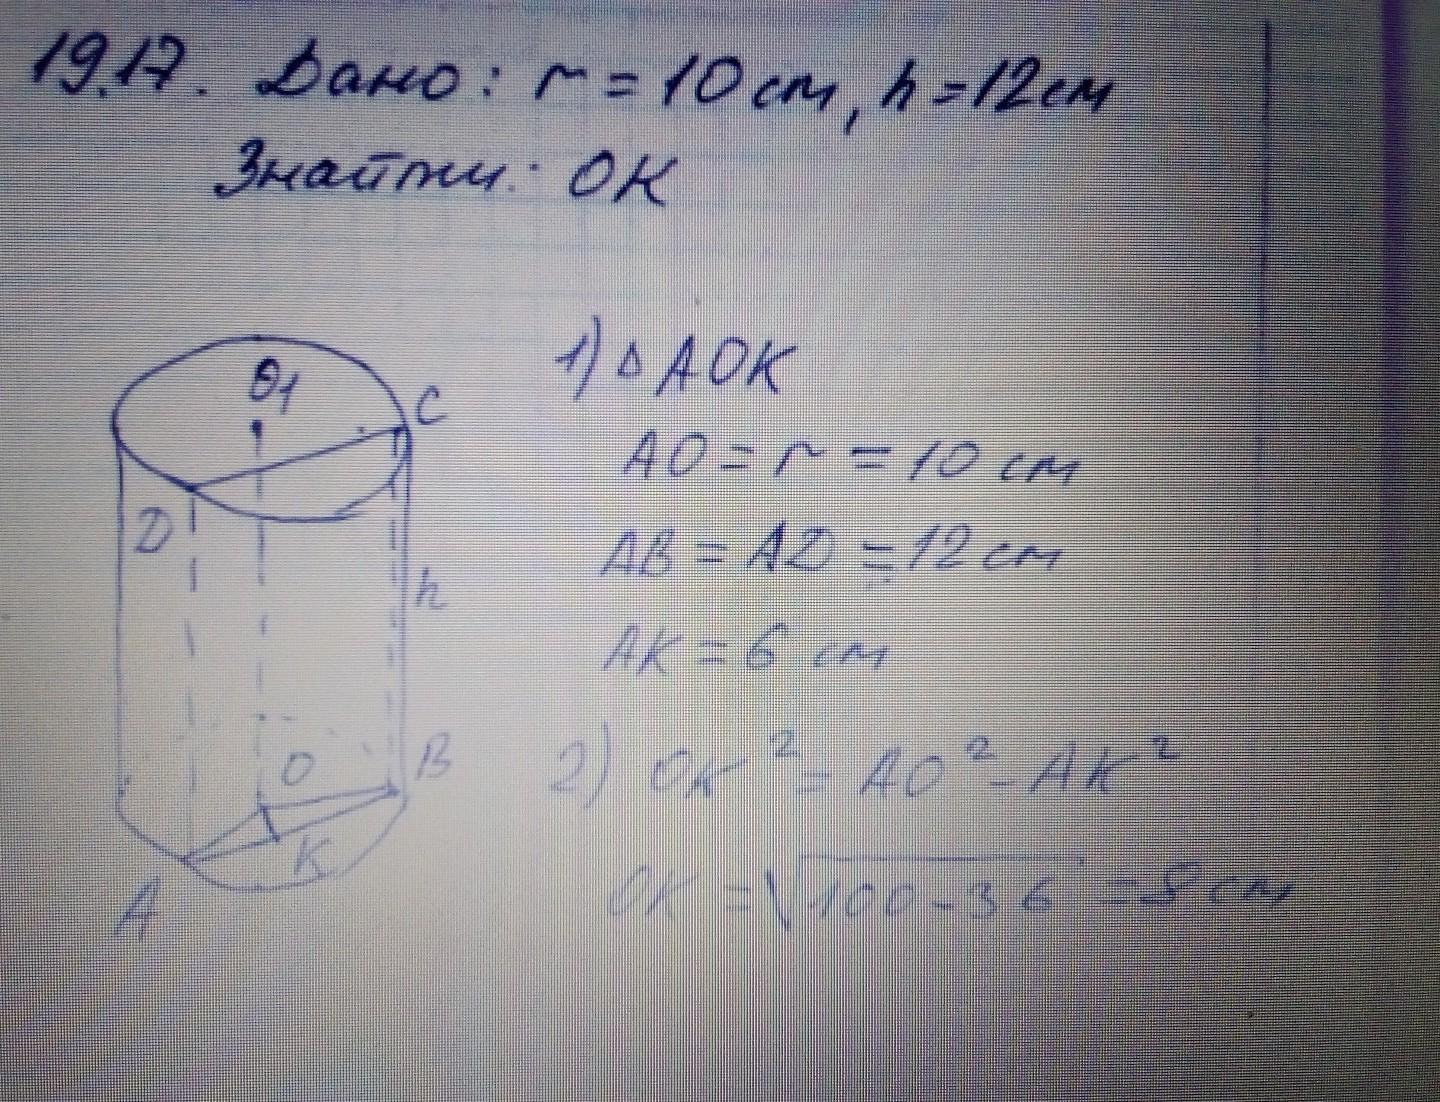 19.17. Дано: r = 10 см, h = 12 см
Знайти: OK
O1
C
D
h
O
B
K
A
1) Δ AOK
AO = r = 10 см
AB = AD = 12 см
AK = 6 см
2) OK² = AO² - AK²
OK = √100 - 36 = 8 см